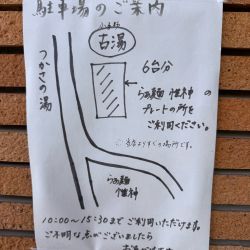 駐車場のご案内
古湯
つかさの湯
6台分
らぁ麺 惺神 の
プレートの所を
ご利用ください。
らぁ麺
惺神
10:00〜15:30まで ご利用いただけます。
ご不明な点がございましたら